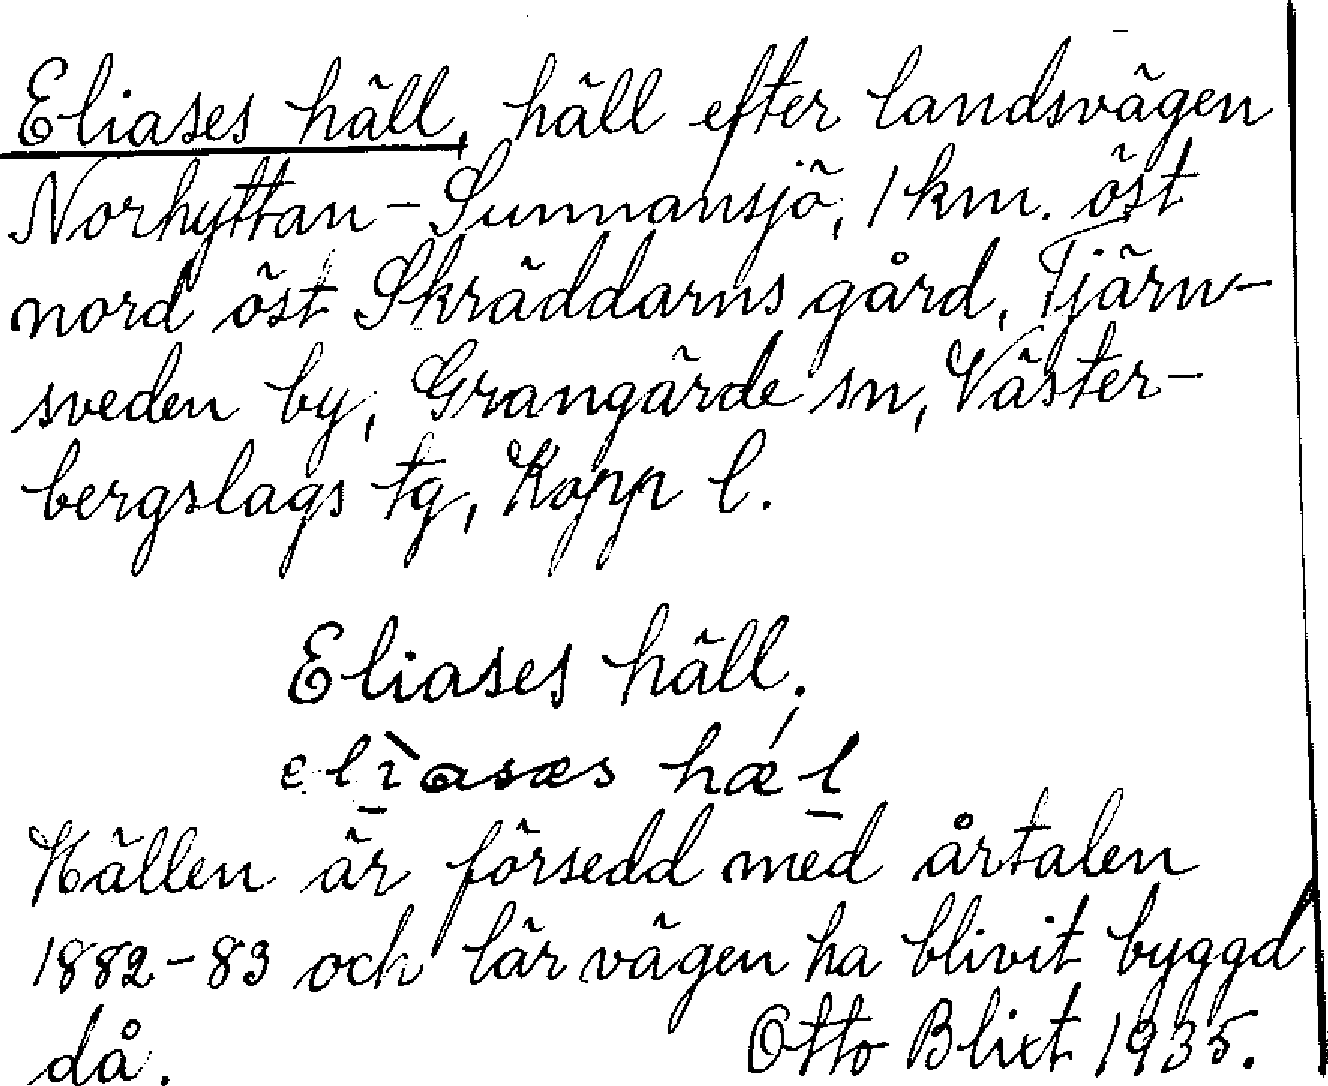 Eliases häll, häll efter landsvägen
Norhyttan - Sunnansjö, 1 km. öst
nord öst Skräddarns gård, Tjärn-
sveden by, Grangärde sn, Väster-
bergslags tg, Kopp l.
Eliases häll.
elìasæs hǽl
Hällen är försedd med årtalen
1882-83 och lär vägen ha blivit byggd
då. Otto Blixt 1935.